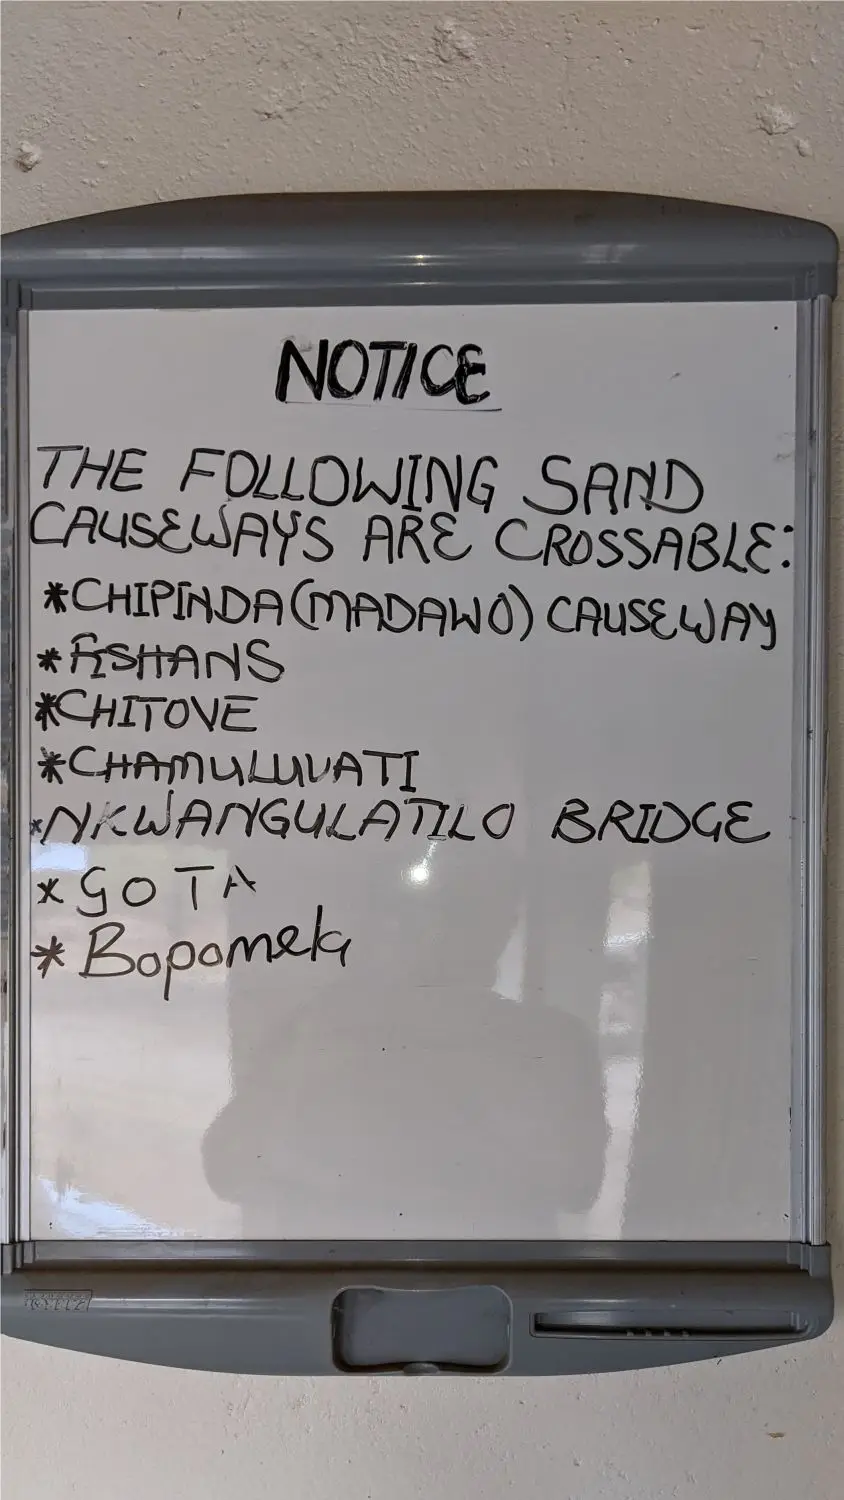 NOTICE
THE FOLLOWING SAND
CAUSEWAYS ARE CROSSABLE:
*CHIPINDA(MADAWO) CAUSEWAY
*FISHANS
*CHITOVE
*CHAMULUVATI
*NKWANGULATILO BRIDGE
* GOTA
* Bopomela